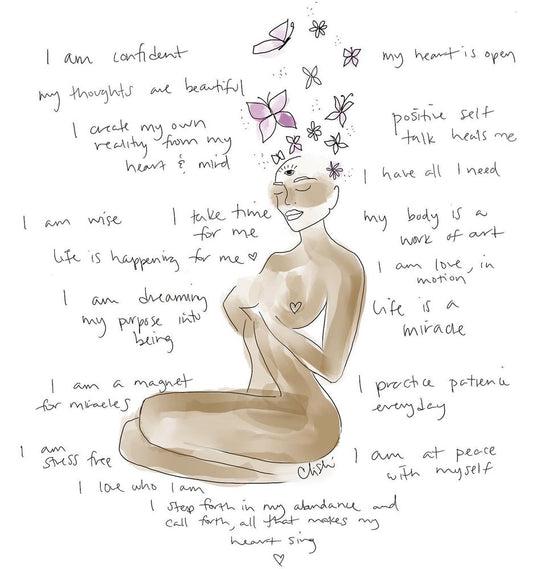 I am confident
my heart is open
my thoughts are beautiful
I create my own
reality from my
heart & mind
positive self
talk heals me
I have all I need
I am wise
I take time
for me
my body is a
work of art
life is happening for me ♡
I am love, in
motion
I am dreaming
my purpose into
being
life is a
miracle
I am a magnet
for miracles
I practice patience
everyday
I am
stress free
I am at peace
with myself
I love who I am
I step forth in my abundance and
call forth, all that makes my
heart sing
♡